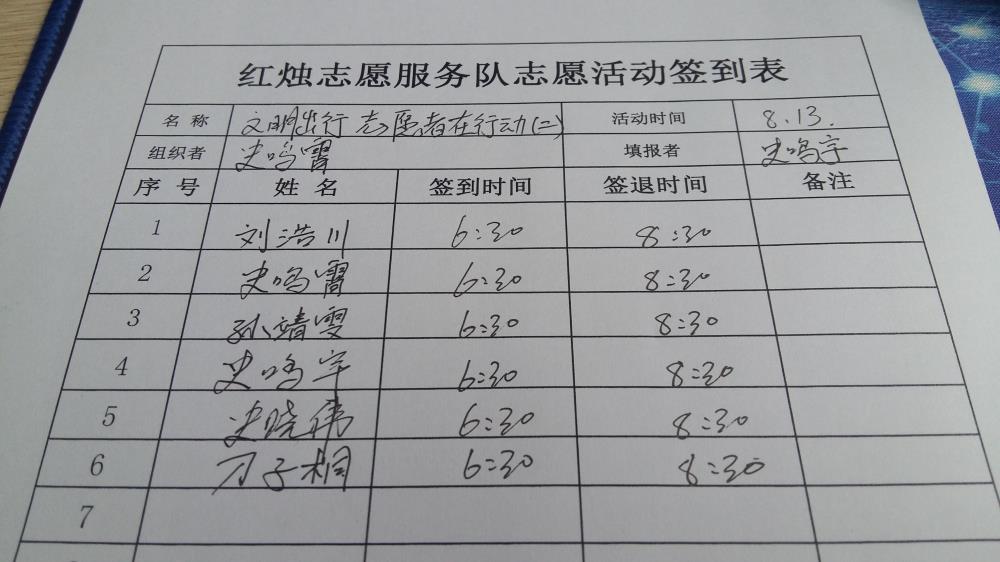 红烛志愿服务队志愿活动签到表
名称 文明出行 志愿者在行动(二) 活动时间 8.13.
组织者 史鸣霄 填报者 史鸣宇
序号 姓名 签到时间 签退时间 备注
1 刘浩川 6:30 8:30
2 史鸣霄 6:30 8:30
3 孙靖雯 6:30 8:30
4 史鸣宇 6:30 8:30
5 史晓伟 6:30 8:30
6 刁子桐 6:30 8:30
7